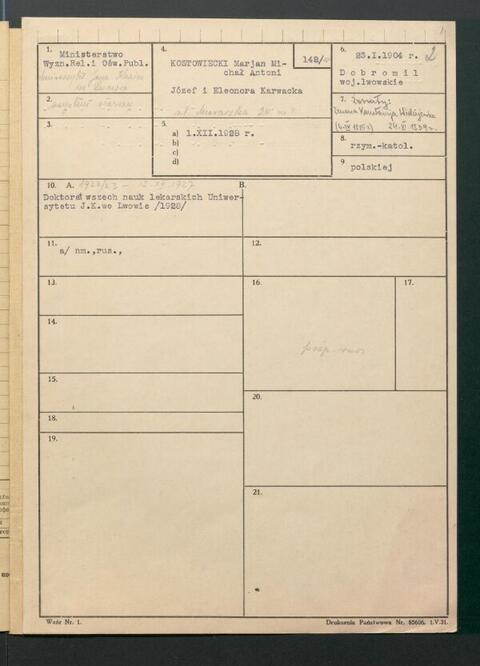 1.
Ministerstwo
Wyzn.Rel.i Ośw.Publ.
Uniwersytet Jana Kazim.
we Lwowie
2.
asystent starszy
3.
4.
KOSTOWIECKI Marjan Mi-
chał Antoni
148/
Józef i Eleonora Karwacka
5.
a) 1.XII.1928 r.
b)
c)
d)
6.
23.I.1904 r.
2
Dobromil
woj.lwowskie
7. Żonaty:
24.VI.1939r.
8.
rzym.-katol.
9.
polskiej
10. A. 1922/23 - 1927
Doktorat wszech nauk lekarskich Uniwer-
sytetu J.K.we Lwowie /1928/
B.
11.
a/ nm.,rus.,
12.
13.
14.
15.
16.
17.
18.
19.
20.
21.
Wzór Nr. 1.
Drukarnia Państwowa Nr. 85606. 1.V.31.